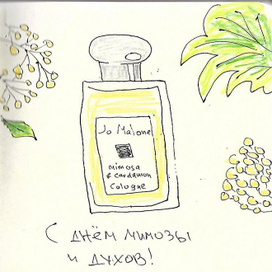 Jo Malone
mimosa
& cardamom
Cologne
С ДНЁМ МИМОЗЫ
И ДУХОВ!